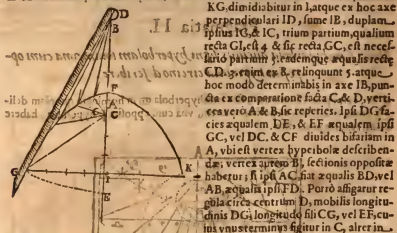 KG, dimidiabitur in I, atque ex hoc axe
perpendiculari ID, sume IB, duplam
ipsius IC, & IC, trium partium, qualium
recta GI, est 4 & sic recta GC, est neces-
sario partium 5. eademque æqualis rectę
CD. 3. enim ex 8. relinquunt 5. atque
hoc modo determinabis in axe IB, pun-
cta ex comparatione facta C, & D, verti-
ces verò A & B, sic reperies. Ipsi DG fa-
cies æqualem DE, & EF æqualem ipsi
GC, vel DC, & CF diuides bifariam in
A, vbi est vertex hyperbolæ describen-
dæ; vertex autem B, sectionis oppositæ
habetur; si ipsi AC, fiat æqualis BD, vel
AB, æqualis ipsi FD. Porrò affigatur re-
gula circa centrum D, mobilis longitu-
dinis DG; longitudo fili CG, vel EF, cu-
ius vnus terminus figitur in C, alter in
D
B
F
A
C
G
I
K
E